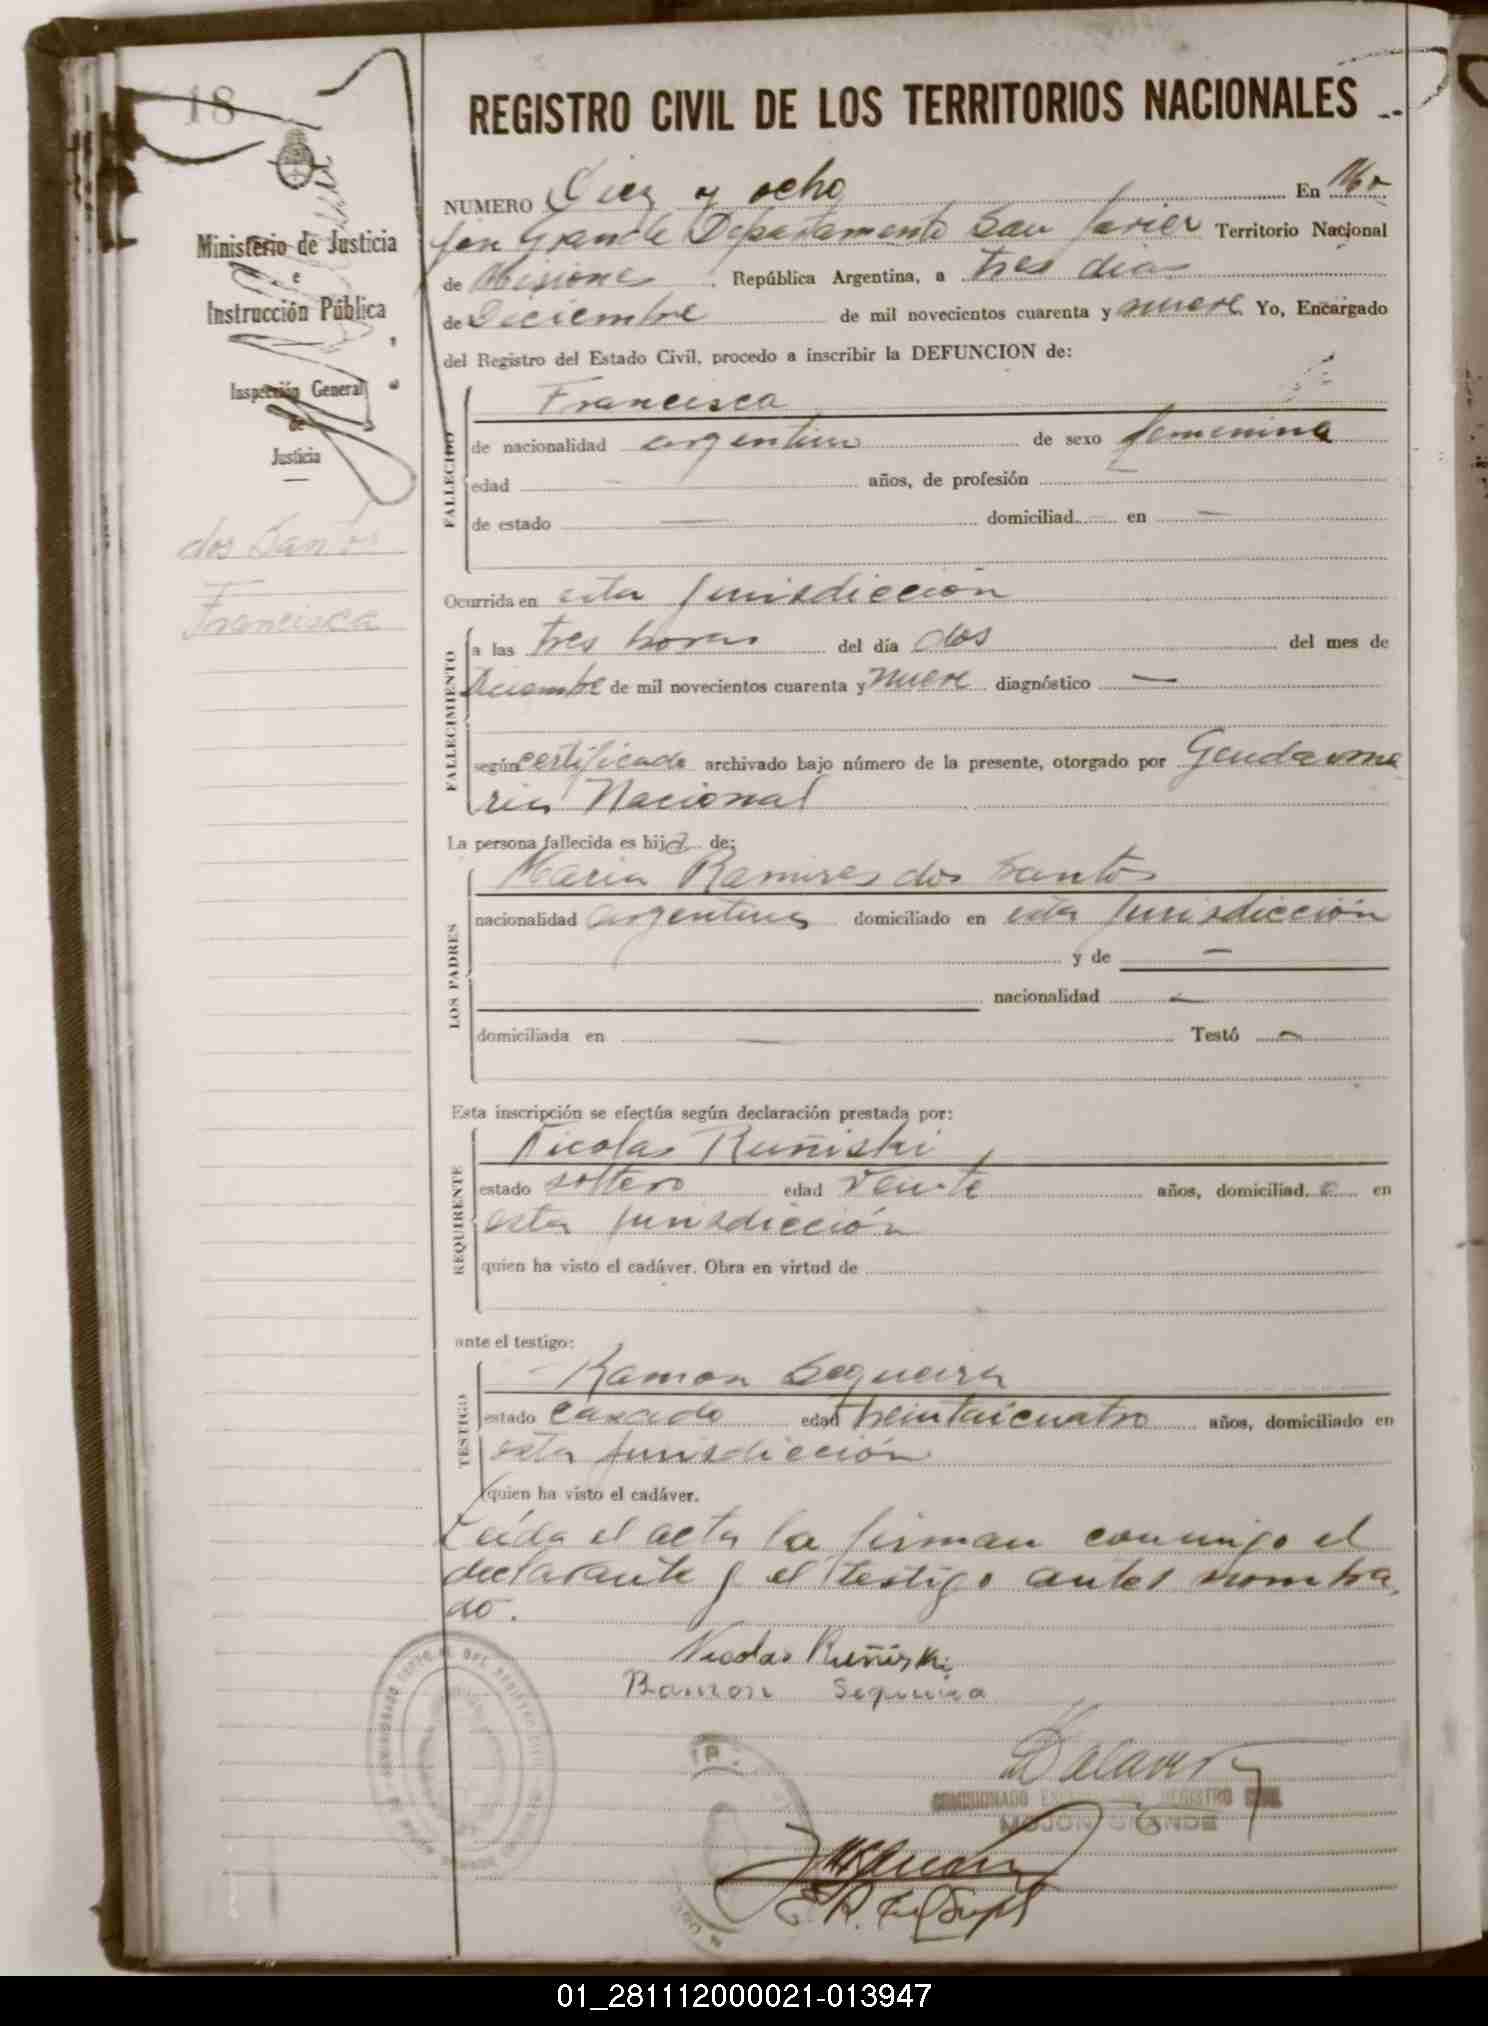 18
Ministerio de Justicia
e
Instrucción Pública
Inspección General
de
Justicia
dos Santos
Francisca
REGISTRO CIVIL DE LOS TERRITORIOS NACIONALES
NUMERO Diez y ocho En Mo
jon Grande Departamento San Javier Territorio Nacional
de Misiones República Argentina, a tres dias
de Diciembre de mil novecientos cuarenta y nueve Yo, Encargado
del Registro del Estado Civil, procedo a inscribir la DEFUNCION de:
FALLECIDO
Francisca
de nacionalidad argentina de sexo femenina
edad — años, de profesión —
de estado — domiciliad — en —
Ocurrida en esta jurisdicción
FALLECIMIENTO
a las tres horas del día dos del mes de
Diciembre de mil novecientos cuarenta y nueve diagnóstico —
según certificado archivado bajo número de la presente, otorgado por Gendarme
ria Nacional
La persona fallecida es hija de:
LOS PADRES
Maria Ramires dos Santos
nacionalidad argentina domiciliado en esta jurisdicción
y de —
nacionalidad —
domiciliada en — Testó —
Esta inscripción se efectúa según declaración prestada por:
REQUIRENTE
Nicolas Ruñiski
estado soltero edad veinte años, domiciliad o en
esta jurisdicción
quien ha visto el cadáver. Obra en virtud de
ante el testigo:
TESTIGO
Ramon Sequeira
estado casado edad treintaicuatro años, domiciliado en
esta jurisdicción
quien ha visto el cadáver.
Leída el acta la firman conmigo el
declarante y el testigo antes nombra
do.
Nicolas Ruñiski
Ramon Sequeira
COMISIONADO REGISTRO CIVIL
MOJON GRANDE
01_281112000021-013947